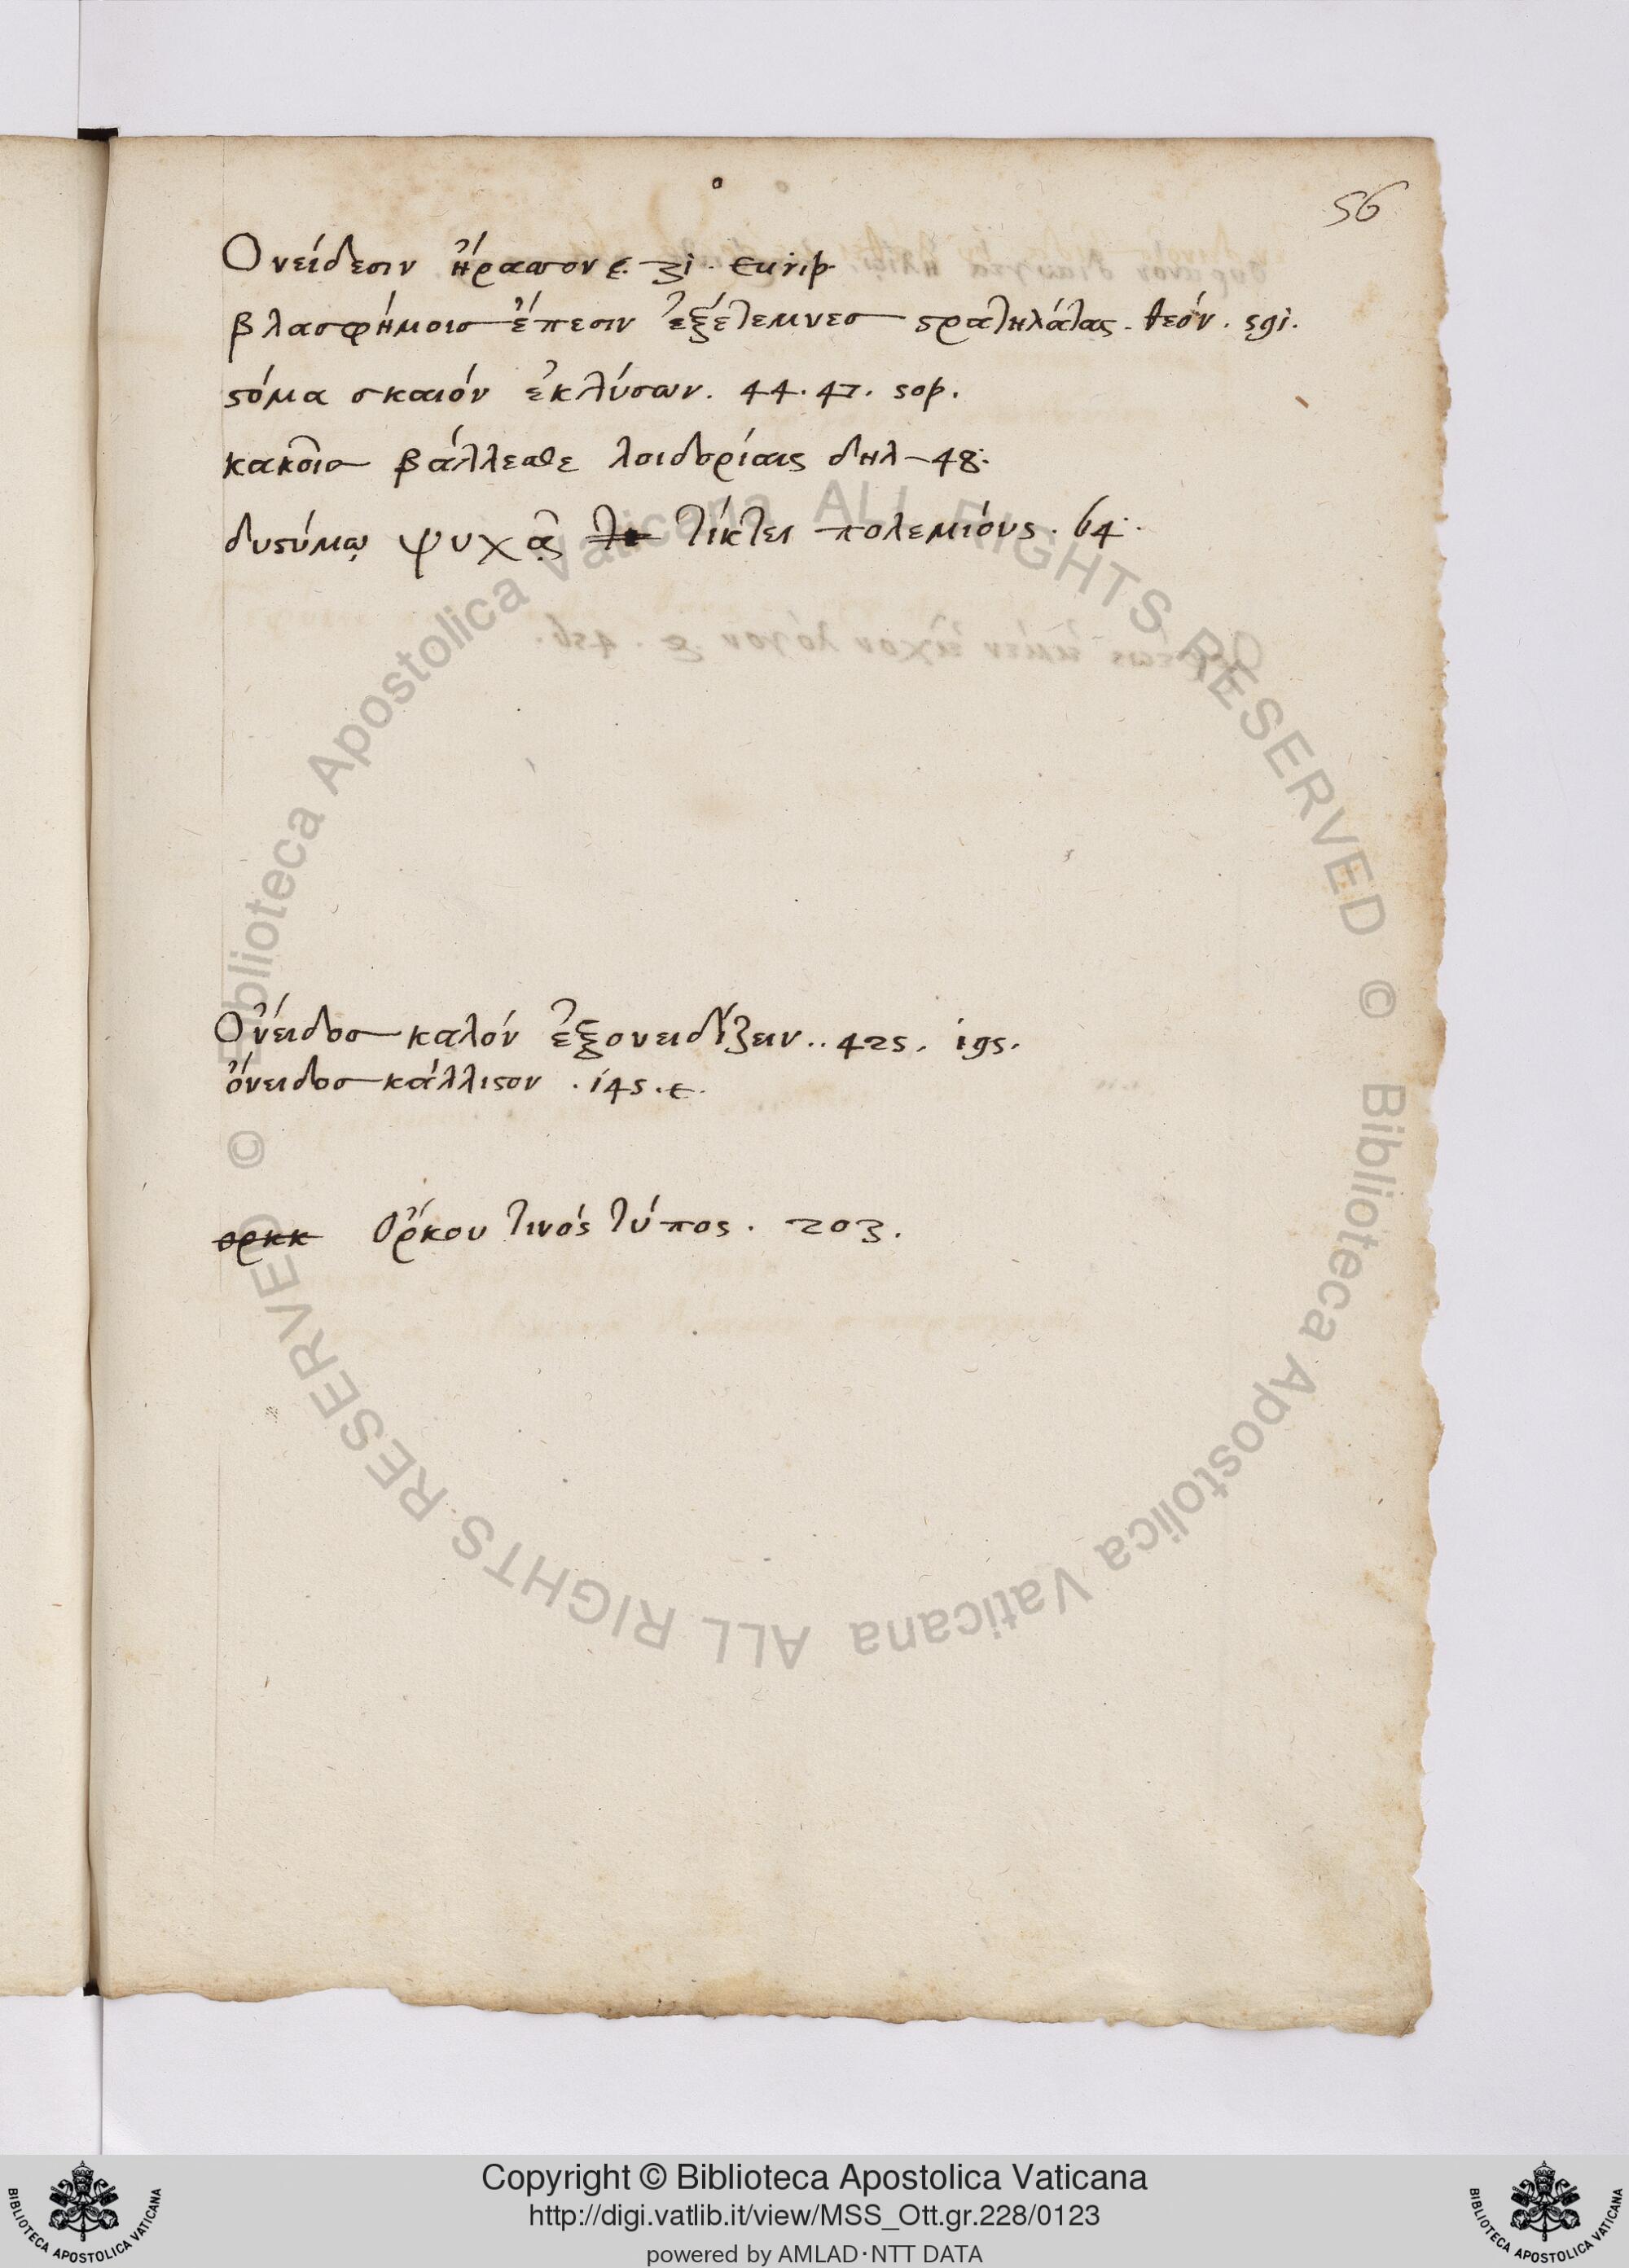 ο
56
Ονείδεσιν ἤρασσον ε. 31. Eurip.
βλασφήμοισ ἔπεσιν ἐξέτεμνεσ ϛρατηλάτας. θεόν. 591.
ϛόμα σκαιόν ἐκλύσων. 44. 47. sop.
κακοῖσ βάλλεσθε λοιδορίαις δηλ 48.
δυϛύμῳ ψυχᾷ τίκτει πολεμιόυς. 64.
Ὄνειδοσ καλόν ἐξονειδίζειν.. 425. 195.
ὄνειδοσ κάλλιϛον. 145. ε.
ορκκ Ὅρκου τινός τύπος. 203.
© Biblioteca Apostolica Vaticana ALL RIGHTS RESERVED © Biblioteca Apostolica Vaticana ALL RIGHTS RESERVED
Copyright © Biblioteca Apostolica Vaticana
http://digi.vatlib.it/view/MSS_Ott.gr.228/0123
powered by AMLAD·NTT DATA
BIBLIOTECA APOSTOLICA VATICANA
BIBLIOTECA APOSTOLICA VATICANA